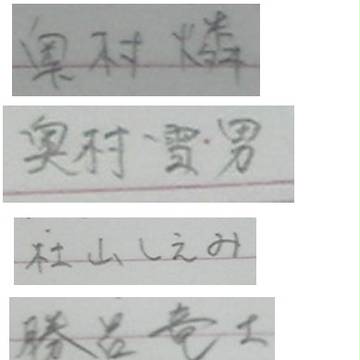 奥村 燐
奥村 雪男
杜山しえみ
勝呂竜士